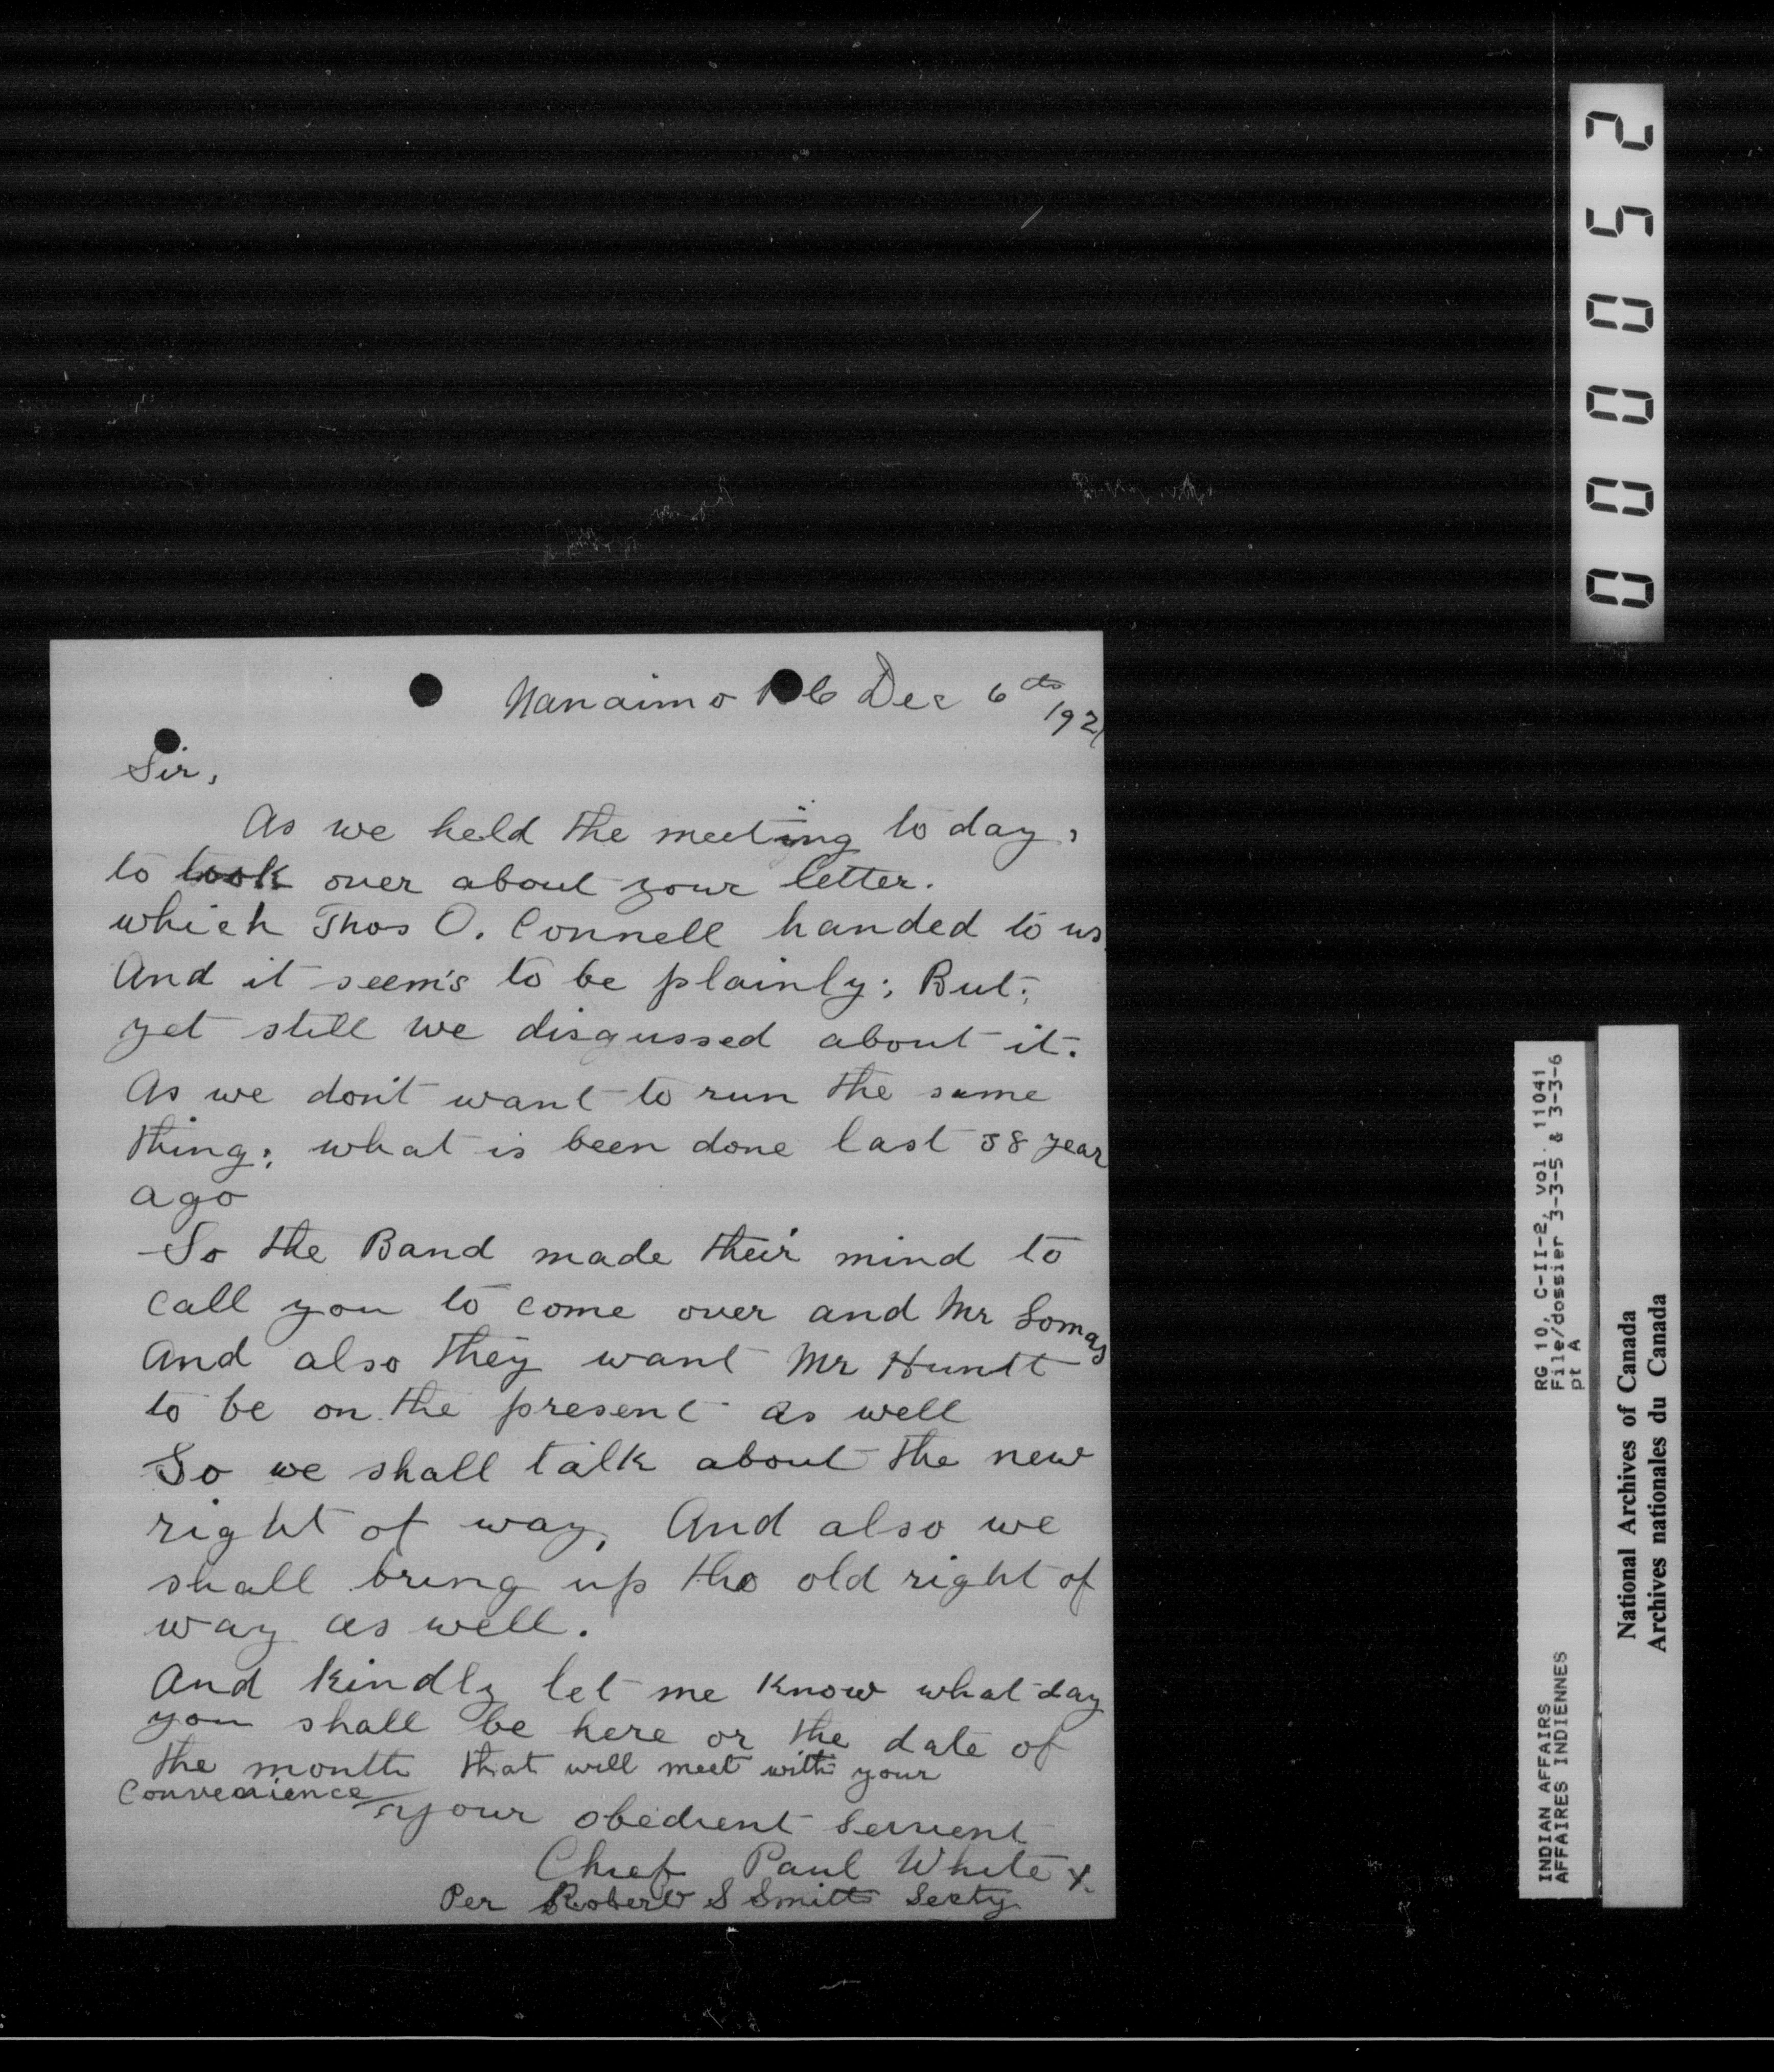 Nanaimo B C Dec 6th
1921
Sir,
As we held the meeting to day,
to look over about your letter.
which Thos O. Connell handed to us
And it seem's to be plainly; But;
yet still we disqussed about it.
As we don't want to run the same
thing; what is been done last 38 year
ago
So the Band made their mind to
call you to come over and Mr Lomas
And also they want Mr Huntt
to be on the present as well
So we shall talk about the new
right of way, And also we
shall bring up the old right of
way as well.
And kindly let me know what day
you shall be here or the date of
the month that will meet with your
Convenience
your obedient servent
Chief Paul White X.
Per Robert S Smith Secty
000052
RG 10, C-II-2, vol. 11041
File/dossier 3-3-5 & 3-3-6
pt A
INDIAN AFFAIRS
AFFAIRES INDIENNES
National Archives of Canada
Archives nationales du Canada